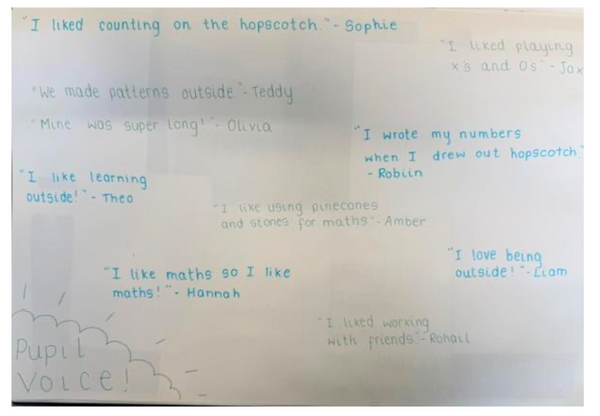 "I liked counting on the hopscotch." - Sophie
"I liked playing
x's and Os" - Jax
"We made patterns outside" - Teddy
"Mine was super long!" - Olivia
"I wrote my numbers
when I drew out hopscotch."
- Robiin
"I like learning
outside!" - Theo
"I like using pinecones
and stones for maths" - Amber
"I love being
outside!" - Liam
"I like maths so I like
maths!" - Hannah
"I liked working
with friends" - Rohail
Pupil
Voice!